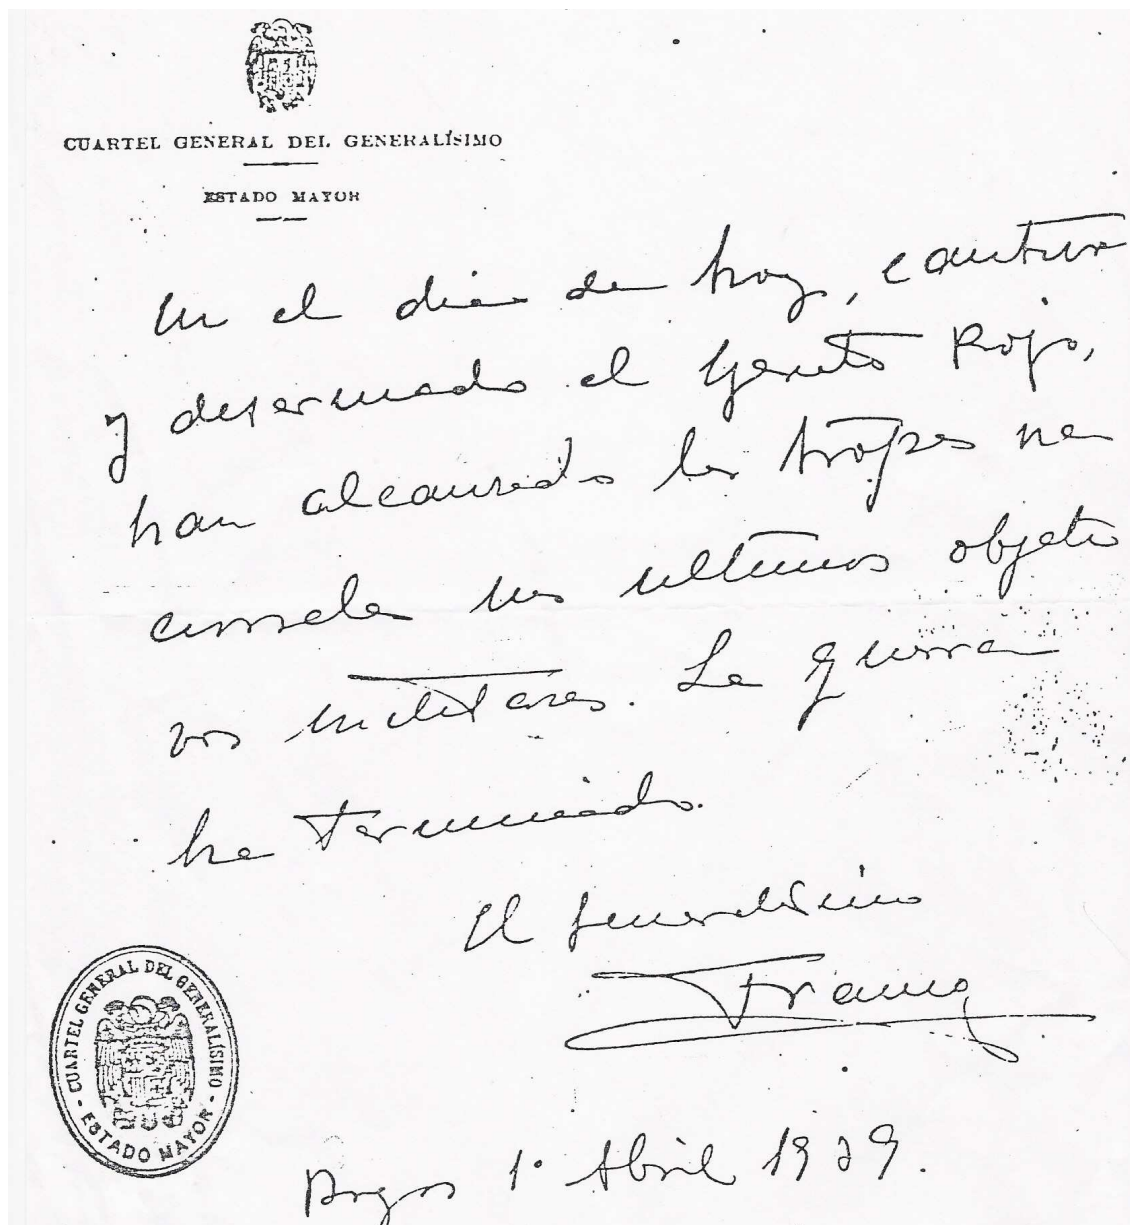 CUARTEL GENERAL DEL GENERALÍSIMO
ESTADO MAYOR
En el dia de hoy, cautivo
y desarmado el Ejercito Rojo,
han alcanzado las tropas na
cionales sus ultimos objeti
vos militares. La guerra
ha terminado.
El Generalisimo
Franco
Burgos 1º Abril 1939.
CUARTEL GENERAL DEL GENERALÍSIMO
- ESTADO MAYOR -